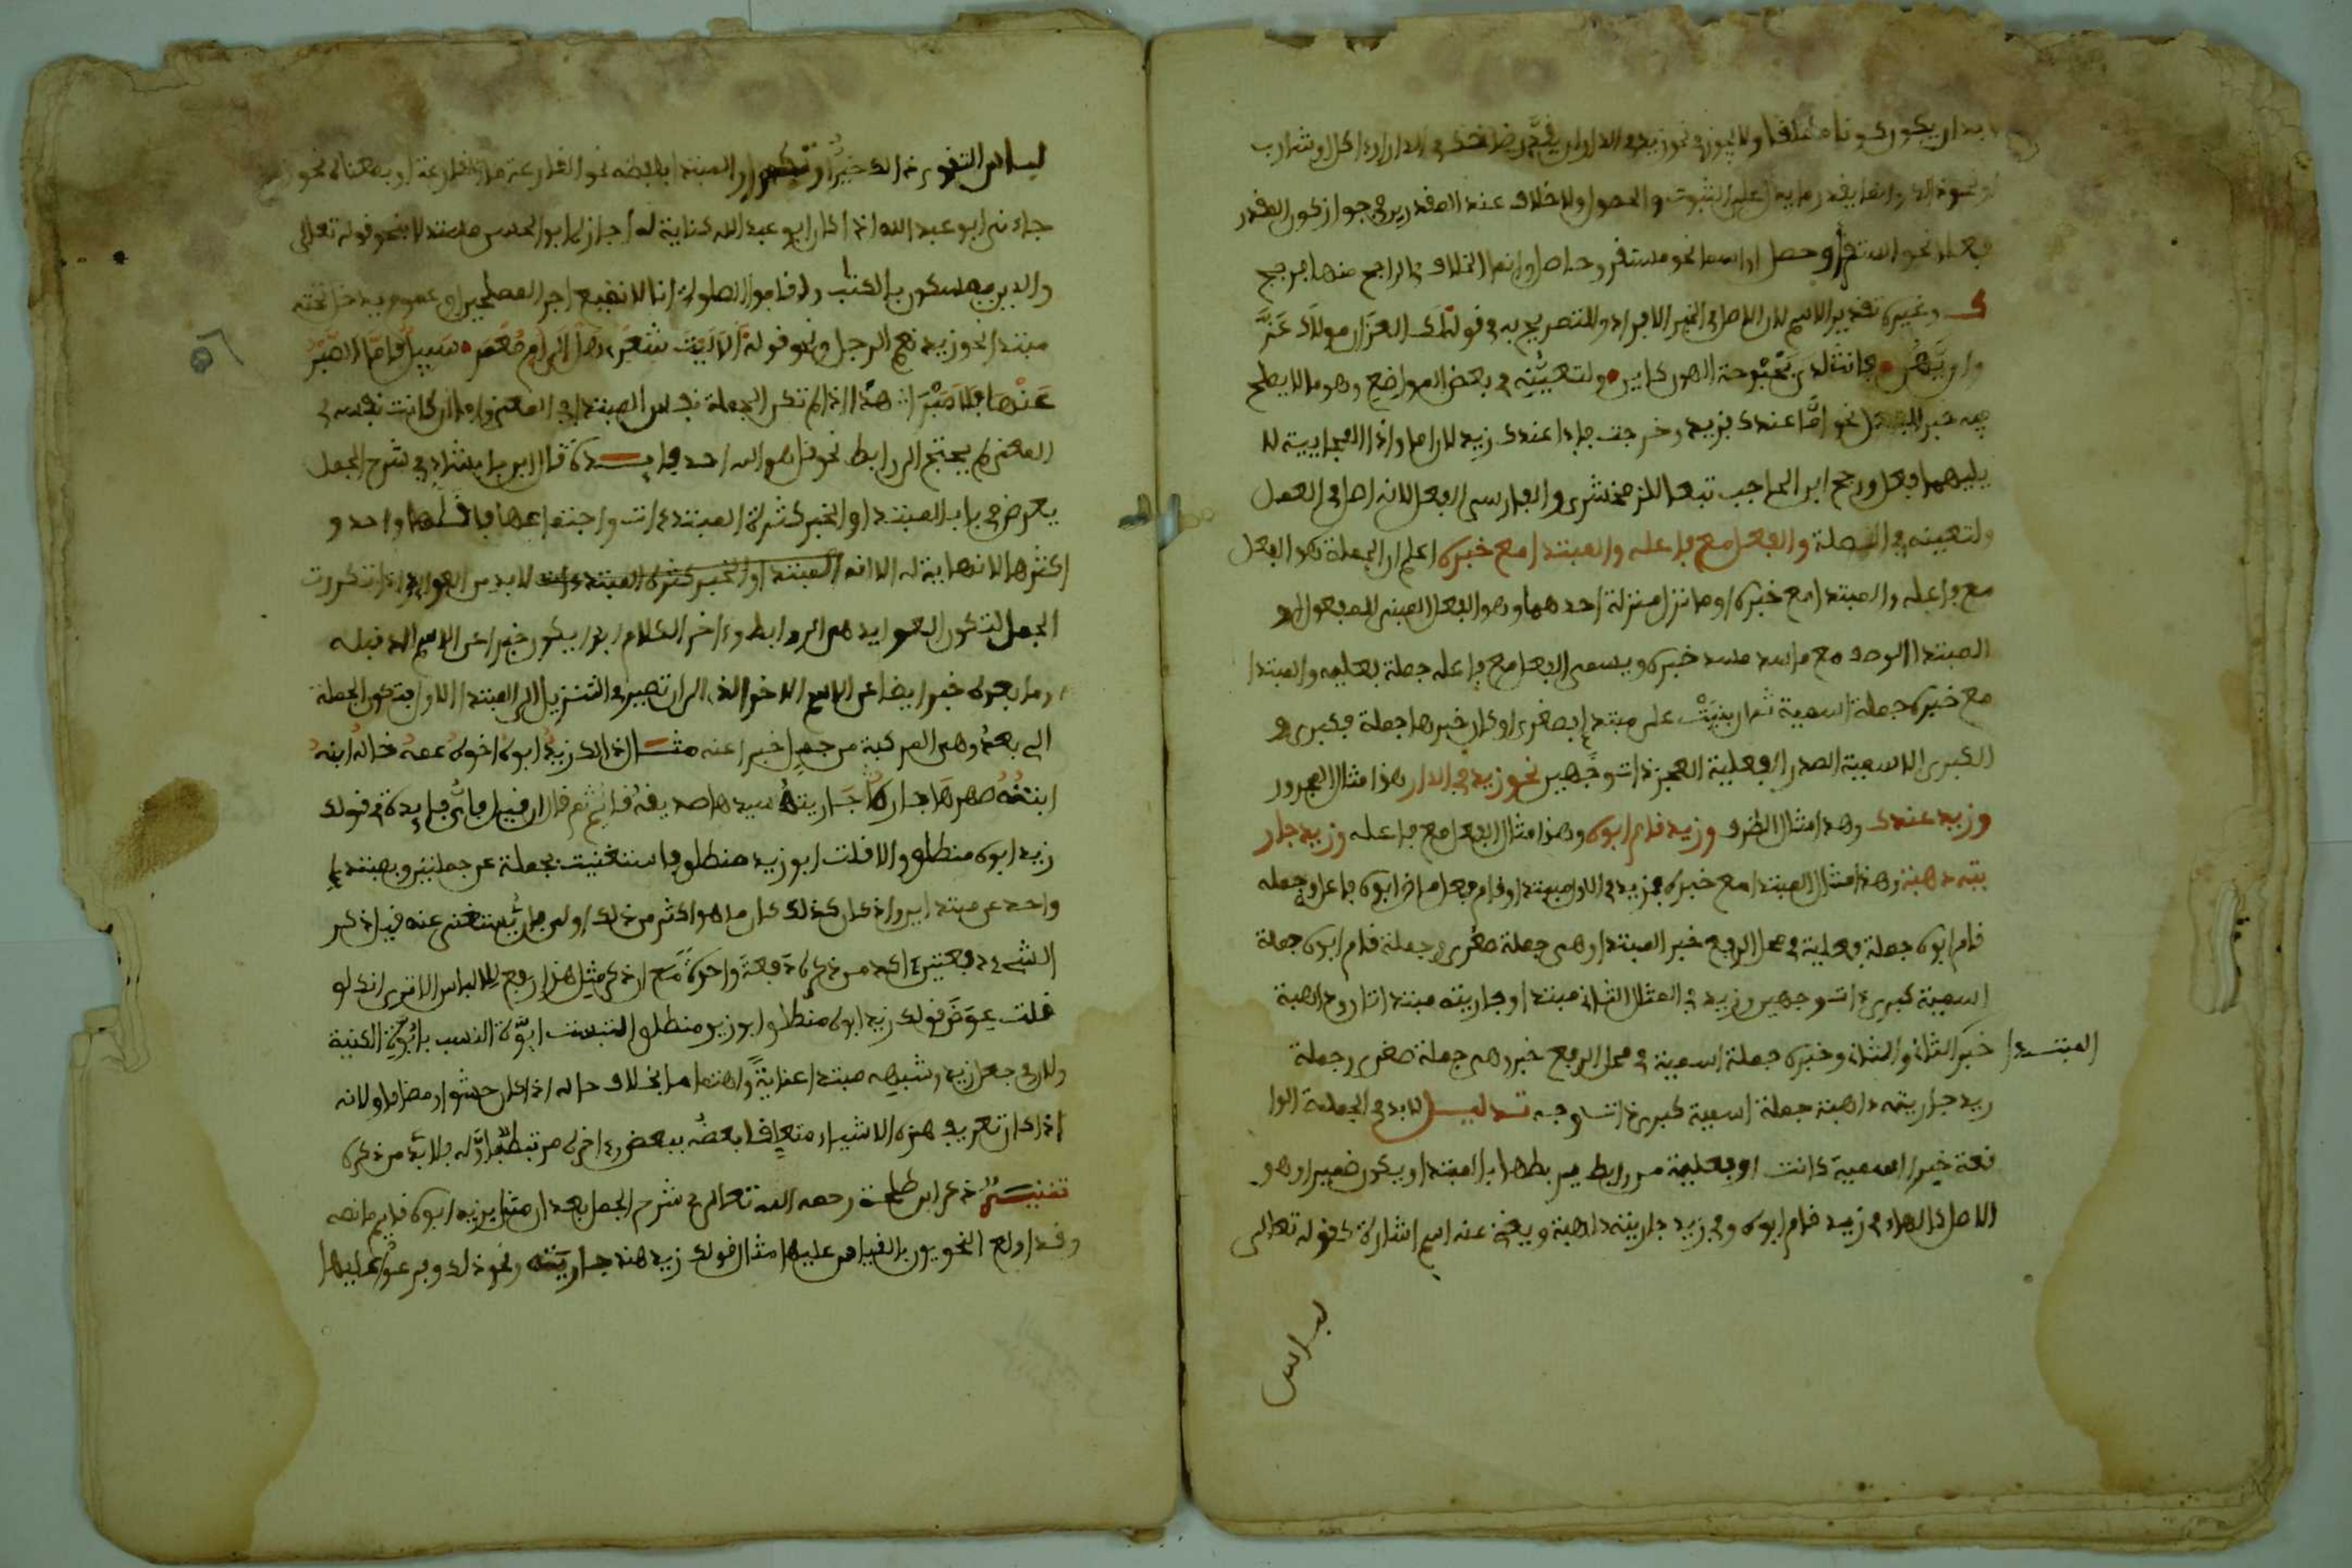 بد ان يكون كونا مطلقا ولا يجوز في نحو زيد في الدار ان يقدر ضاحك في الدار او اكل او شارب
او نحو ذلك وانما يقدر ما يدل على الثبوت والحصول ولا خلاف عند المقدرين في جواز كون المقدر
فعلا نحو استقر او حصل او اسما نحو مستقر وحاصل وانما الخلاف في الراجح منهما فرجح
ك وغيره تقدير الاسم لان الاصل في الخبر الافراد وللتصريح به في قوله لك العز ان مولاك عز
وان يهن فانت لدى بحبوحة الهون كاين ولتعينه في بعض المواضع وهو ما لا يصلح
فيه خبر المبتدا نحو اما عندك فزيد وخرجت فاذا عندك زيد لان اما واذا الفجايية لا
يليهما فعل ورجح ابن الحاجب تبعا للزمخشري والفارسي الفعل لانه اصل في العمل
ولتعينه في الصلة والفعل مع فاعله والمبتدا مع خبره اعلم ان الجملة هي الفعل
مع فاعله والمبتدا مع خبره او ما نزل منزلة احدهما وهو الفعل المبني للمفعول او
المبتدا الوصف مع ما سد مسد خبره ويسمى الفعل مع فاعله جملة فعلية والمبتدا
مع خبره جملة اسمية ثم ان بنيت على مبتدا فصغرى او كان خبرها جملة فكبرى و
الكبرى الاسمية الصدر الفعلية العجز ذات وجهين نحو زيد في الدار هذا مثال المجرور
وزيد عندك وهذا مثال الظرف وزيد قام ابوه وهذا مثال الفعل مع فاعله وزيد جار
يته ذاهبة وهذا مثال المبتدا مع خبره فزيد في الاول مبتدا وقام فعل ماض ابوه فاعل وجملة
قام ابوه جملة فعلية في محل الرفع خبر المبتدا وهي جملة صغرى وجملة قام ابوه جملة
اسمية كبرى ذات وجهين وزيد في المثال الثاني مبتدا وجاريته مبتدا ثان وذاهبة
المبتدا خبر الثاني والثاني وخبره جملة اسمية في محل الرفع خبر وهي جملة صغرى وجملة
زيد جاريته ذاهبة جملة اسمية كبرى ذات وجه تذييل لا بد في الجملة الوا
قعة خبرا اسمية كانت او فعلية من رابط يربطها بالمبتدا ويكون ضميرا وهو
الاصل كالهاء في زيد قام ابوه وفي زيد جاريته ذاهبة ويغني عنه اسم اشارة كقوله تعالى
لباس
لباس التقوى ذلك خير او تكرار المبتدا بلفظه نحو القارعة ما القارعة او بمعناه نحو
جاءني ابو عبد الله اذا كان ابو عبد الله كناية له اجازه ابو الحسن مستدلا بنحو قوله تعالى
والذين يمسكون بالكتاب واقاموا الصلوة انا لا نضيع اجر المصلحين او عموم يدخل تحته
مبتدا نحو زيد نعم الرجل ونحو قوله الا ليت شعري هل الى ام معمر سبيل فاما الصبر
عنها فلا صبرا هذا اذا لم تكن الجملة نفس المبتدا في المعنى واما ان كانت نفسه في
المعنى لم يحتج الى رابط نحو قل هو الله احد فايدة قال ابن بابشاذ في شرح الجمل
يعرض في باب المبتدا والخبر كثرة المبتدءات واجتماعها فاقلها واحد و
اكثرها لا نهاية له الا انه المبتدا والخبر كثرة المبتدءات لا بد من العوايد اذا تكررت
الجمل لتكون العوايد هي الروابط وءاخر الكلام ابدا يكون خبرا عن الاسم الذي قبله
وما بعده خبر ايضا عن الاسم الاخر الذي الى ان تصير في التنزيل الى المبتدا الاول فتكون الجملة
التي بعده وهي المركبة من جمل خبرا عنه مثال ذلك زيد ابوه اخوه عمه خاله ابنه
ابنته صهرها جارها جاريته سيدها صديقه قائم ثم قال ان قيل فاي فايدة في قولك
زيد ابوه منطلق والا قلت ابو زيد منطلق فاستغنيت بجملة عن جملتين وبمبتدا
واحد عن مبتداين واذ كان كذلك كان ما هو اكثر من ذلك اولى بان يستغنى عنه قيل ذكر
الشيء دفعتين ءاكد من ذكره دفعة واحدة مع ان ذكر مثل هذا ارفع للالباس الا ترى انك لو
قلت عوض قولك زيد ابوه منطلق ابو زيد منطلق التبست ابوة النسب بابوة الكنية
ولان في جعل زيد وشبهه مبتدا عناية واهتماما بخلاف حاله اذا كان حشوا او مضافا ولانه
اذا كان تعريف هذه الاشياء متعلقا بعضه ببعض وءاخره مرتبطا باوله فلا بد من ذكره
تنبيه ذكر ابن طلحة رحمه الله تعالى في شرح الجمل بعد ان مثل بزيد ابوه قايم ما نصه
وقد اولع النحويون بالقياس عليها مثال قولك زيد هند جاريته ونحو ذلك وفرعوا عليها